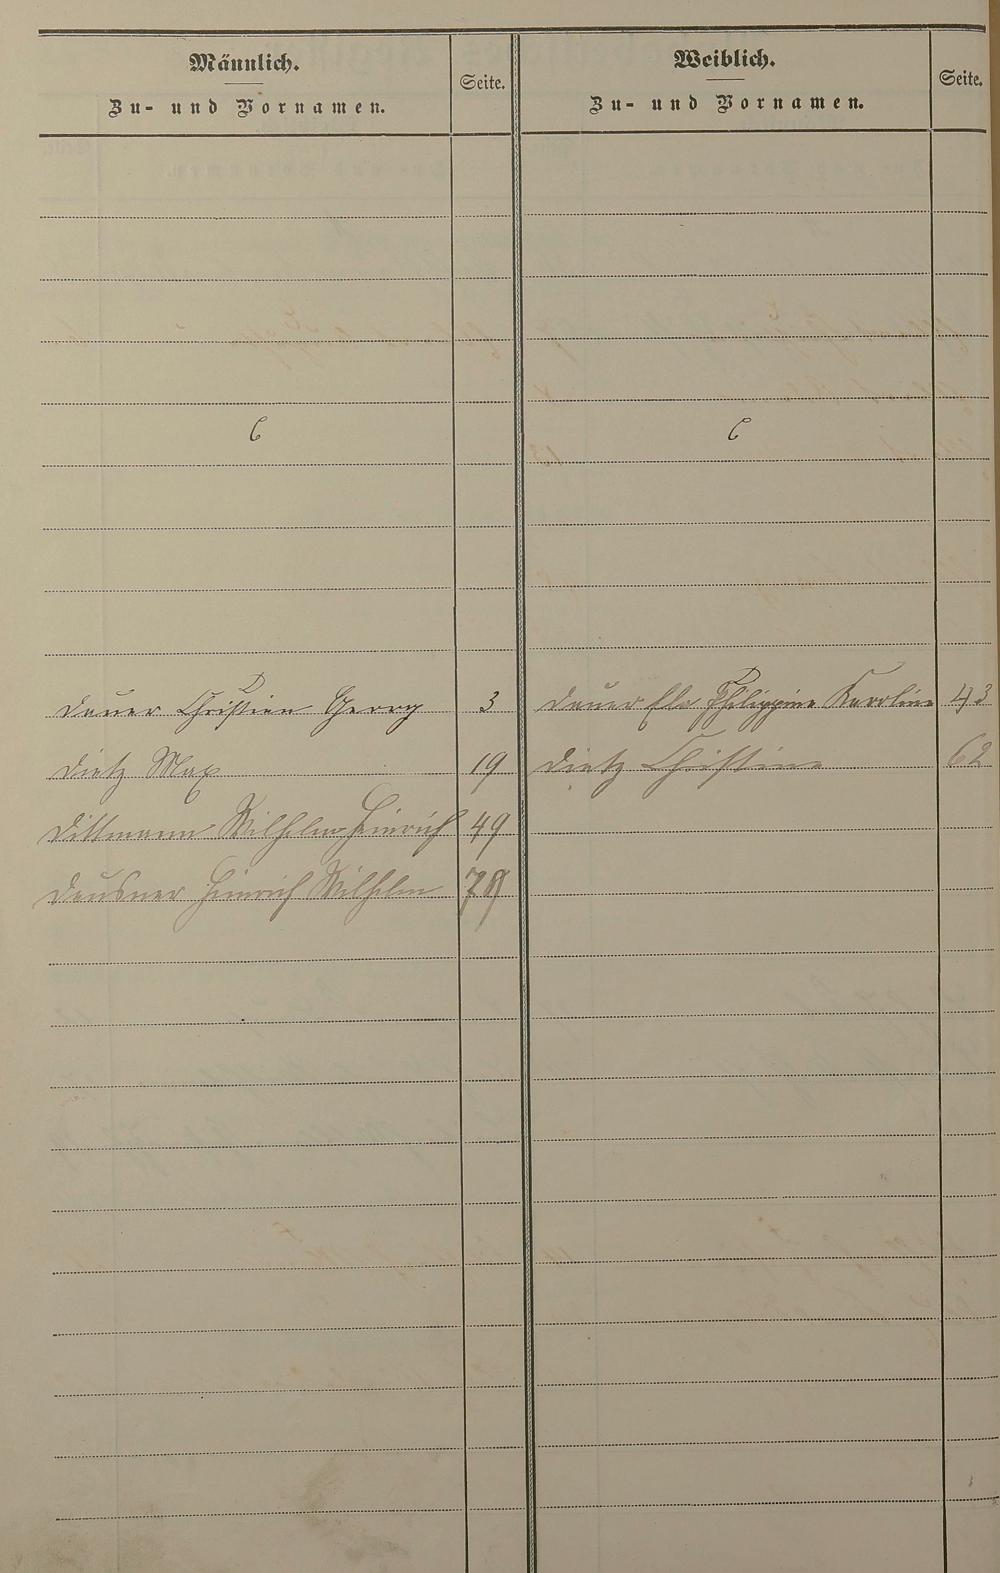 Männlich.
Zu- und Vornamen.
Seite.
Weiblich.
Zu- und Vornamen.
Seite.
C
C
D
D
Dauer Christian Georg 3
Dauer Ela Philippine Karoline 43
Dietz Max 19
Dietz Christine 62
Dittmann Wilhelm Heinrich 49
Deusner Heinrich Wilhelm 78